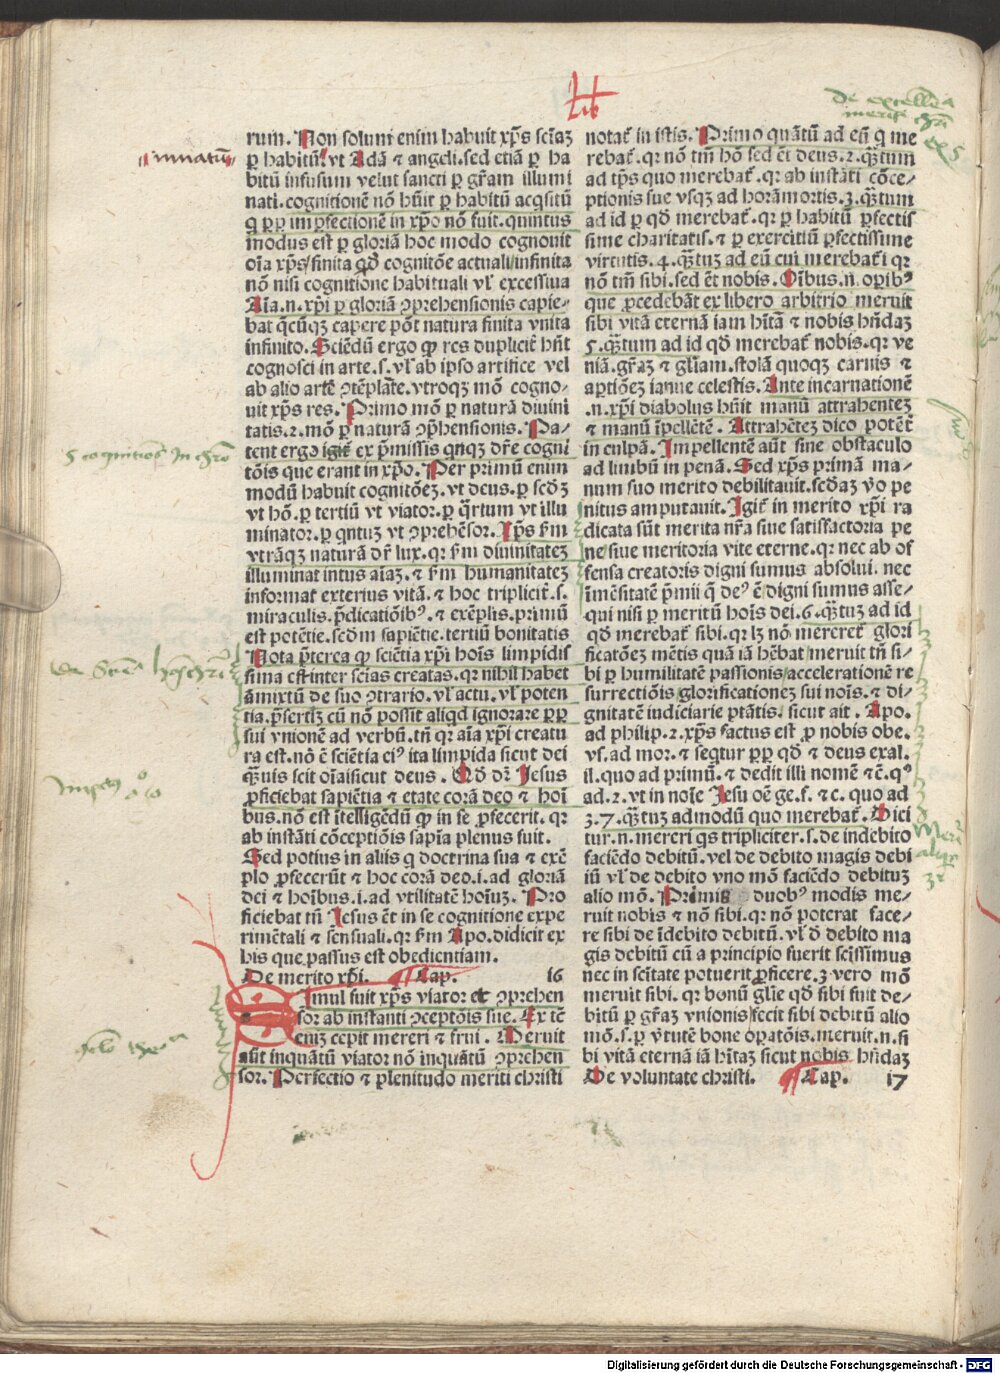 Lib
rum. Non solum enim habuit xp̄s sciaꝫ
ꝑ habitū vt Adā ⁊ angeli. sed etiā ꝑ ha
bitū infusum velut sancti ꝑ gr̄am illumi
nati. cognitionē nō hūit ꝑ habitū acq̄sitū
q̄ ꝓꝑ imꝑfectionē in xp̄o nō fuit. quintus
modus est ꝑ gloriā hoc modo cognouit
oīa xp̄s finita qd̄ cognitōe actuali infinita
nō nisi cognitione habituali vl' excessiua
Aīa .n. xp̄i ꝑ gloriā ꝯprehensionis capie-
bat q̄cūqꝫ capere pōt natura finita vnita
infinito. Sciēdū ergo ꝙ res duplicit̄ hn̄t
cognosci in arte. s. vl' ab ipso artifice vel
ab alio artē ꝯtēplāte. vtroqꝫ mō cogno-
uit xp̄s res. Primo mō ꝑ naturā diuini
tatis. 2. mō ꝑ naturā ꝯp̄hensionis. Pa-
tent ergo igit̄ ex p̄missis qnqꝫ dr̄e cogni
tōis que erant in xp̄o. Per primū enim
modū habuit cognitōeꝫ. vt deus. ꝑ scd̄ꝫ
vt hō. ꝑ tertiū vt viator. ꝑ q̄rtum vt illu
minator. ꝑ qntuꝫ vt ꝯprehēsor. Ip̄s s'm
vtrāqꝫ naturā dr̄ lux. qr s'm diuinitateꝫ
illuminat intus aīaꝫ. ⁊ s'm humanitateꝫ
informat exterius vitā. ⁊ hoc triplicit̄. s.
miraculis. p̄dicatiōibꝰ. ⁊ exēplis. primū
est potētie. scd̄m sapiētie. tertiū bonitatis
Nota p̄terea ꝙ sciētia xp̄i hoīs limpidis
sima est inter sciās creatas. qr nihil habet
āmixtū de suo ꝯtrario. vl' actu. vl' poten
tia. p̄sertiꝫ cū nō possit aliqd ignorare ꝓꝑ
sui vnionē ad verbū. tn̄ qr aīa xp̄i creatu
ra est. nō ē sciētia eiꝰ ita limpida sicut dei
q̄uis scit oīa sicut deus. Qd̄ dr̄ Jesus
ꝓficiebat sapiētia ⁊ etate corā deo ⁊ hoī
bus. nō est itelligēdū ꝙ in se ꝓfecerit. qr
ab instāti cōceptiōis sapīa plenus fuit.
Sed potius in aliis q̄ doctrina sua ⁊ exē
plo ꝓfecerūt ⁊ hoc corā deo. i. ad gloriā
dei ⁊ hoībus. i. ad vtilitatē hoīuꝫ. Pro
ficiebat tn̄ Jesus ēt in se cognitione expe
rimētali ⁊ sēnsuali. qr s'm Apo. didicit ex
his que passus est obedientiam.
De merito xp̄i. Cap. 16
Simul fuit xp̄s viator et ꝯprehen
sor ab instanti ꝯceptōis sue. Ex tē
eniꝫ cepit mereri ⁊ frui. Meruit
aūt inquātū viator nō inquātū ꝯprehen
sor. Perfectio ⁊ plenitudo meriti christi
notat̄ in istis. Primo quātū ad eū q̄ me
rebat̄. qr nō tm̄ hō sed ēt deus. 2. q̄tum
ad tp̄s quo merebat̄. qr ab instāti cōce-
ptionis sue vsqꝫ ad horā mortis. 3. q̄tum
ad id ꝑ qd̄ merebat̄. qr ꝑ habitū ꝑfectis
sime charitatis. ⁊ ꝑ exercitiū ꝑfectissime
virtutis. 4. q̄tuꝫ ad eū cui merebat̄ qr
nō tm̄ sibi. sed ēt nobis. Oībus .n. oꝑibꝰ
que ꝓcedebāt ex libero arbitrio meruit
sibi vitā eternā iam hītā ⁊ nobis hn̄daꝫ
5. q̄tum ad id qd̄ merebat̄ nobis. qr ve
niā. gr̄aꝫ ⁊ gl'iam. stolā quoqꝫ carnis ⁊
aꝑtiōeꝫ ianue celestis. Ante incarnationē
.n. xp̄i diabolus hūit manū attrahenteꝫ
⁊ manū īpellētē. Attrahēteꝫ dico potēt̄
in culpā. Impellentē aūt sine obstaculo
ad limbū in penā. Sed xp̄s primā ma-
num suo merito debilitauit. scd̄aꝫ v̄o pe
nitus amputauit. Igit̄ in merito xp̄i ra
dicata sūt merita nr̄a siue satisfactoria pe
ne siue meritoria vite eterne. qr nec ab of
fensa creatoris digni sumus absolui. nec
imēsitatē p̄mii q̄ deꝰ ē digni sumus asse-
qui nisi ꝑ meritū hoīs dei. 6. q̄tuꝫ ad id
qd̄ merebat̄ sibi. qr lꝫ nō mereret̄ glori
ficatōeꝫ mētis quā iā hēbat meruit tn̄ si-
bi ꝑ humilitatē passionis accelerationē re
surrectiōis glorificationeꝫ sui noīs. ⁊ di-
gnitatē iudiciarie ptātis. sicut ait. Apo.
ad philip. 2. xp̄s factus est ꝓ nobis obe.
vs. ad mor. ⁊ seqtur ꝓꝑ qd̄ ⁊ deus exal.
il. quo ad primū. ⁊ dedit illi nomē ⁊c̄. qꝰ
ad. 2. vt in noīe Jesu oē ge. f. ⁊ c. quo ad
3. 7. q̄tuꝫ ad modū quo merebat̄. Dici
tur .n. mereri qs tripliciter. s. de indebito
faciēdo debitū. vel de debito magis debi
tū vl' de debito vno mō faciēdo debituꝫ
alio mō. Primis duobꝰ modis me-
ruit nobis ⁊ nō sibi. qr nō poterat face-
re sibi de īdebito debitū. vl' d̄ debito ma
gis debitū cū a principio fuerit sctissimus
nec in sctitate potuerit ꝓficere. 3 vero mō
meruit sibi. qr bonū gl'ie qd̄ sibi fuit de-
bitū ꝑ gr̄aꝫ vnionis fecit sibi debitū alio
mō. s. ꝑ v̄tutē bone oꝑatōis. meruit .n. si
bi vitā eternā iā hītaꝫ sicut nobis hn̄daꝫ
De voluntate christi. Cap. 17
Digitalisierung gefördert durch die Deutsche Forschungsgemeinschaft - DFG